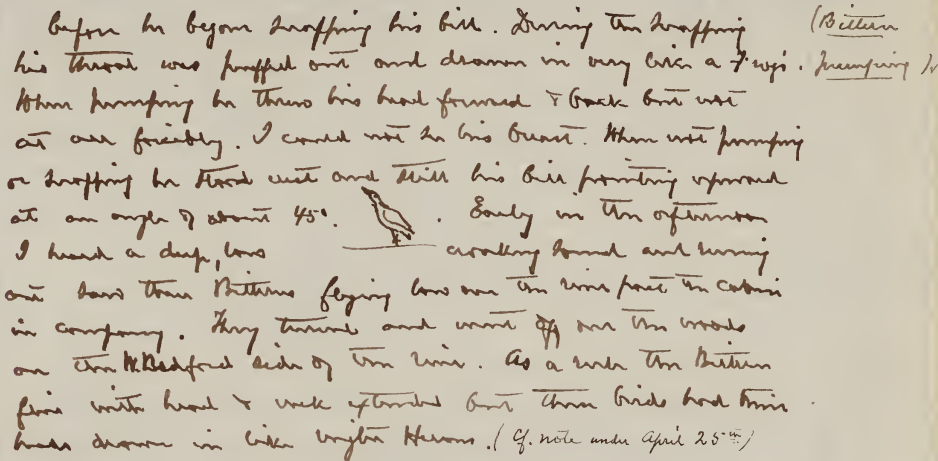 before he began snapping his bill. During the snapping (Bittern
his throat was puffed out and drawn in very like a Frog's. pumping)
When pumping he threw his head forward & back but not
at all forcibly. I could not see his breast. When not pumping
or snapping he stood erect and still his bill pointing upward
at an angle of about 45°. Early in the afternoon
I heard a deep, low croaking sound and running
out saw three Bitterns flying low over the river past the cabin
in company. They turned and went off over the woods
on the W. Bedford side of the river. As a rule the Bittern
flies with head & neck extended but these birds had their
heads drawn in like Night Herons. (Cf. note under April 25th)